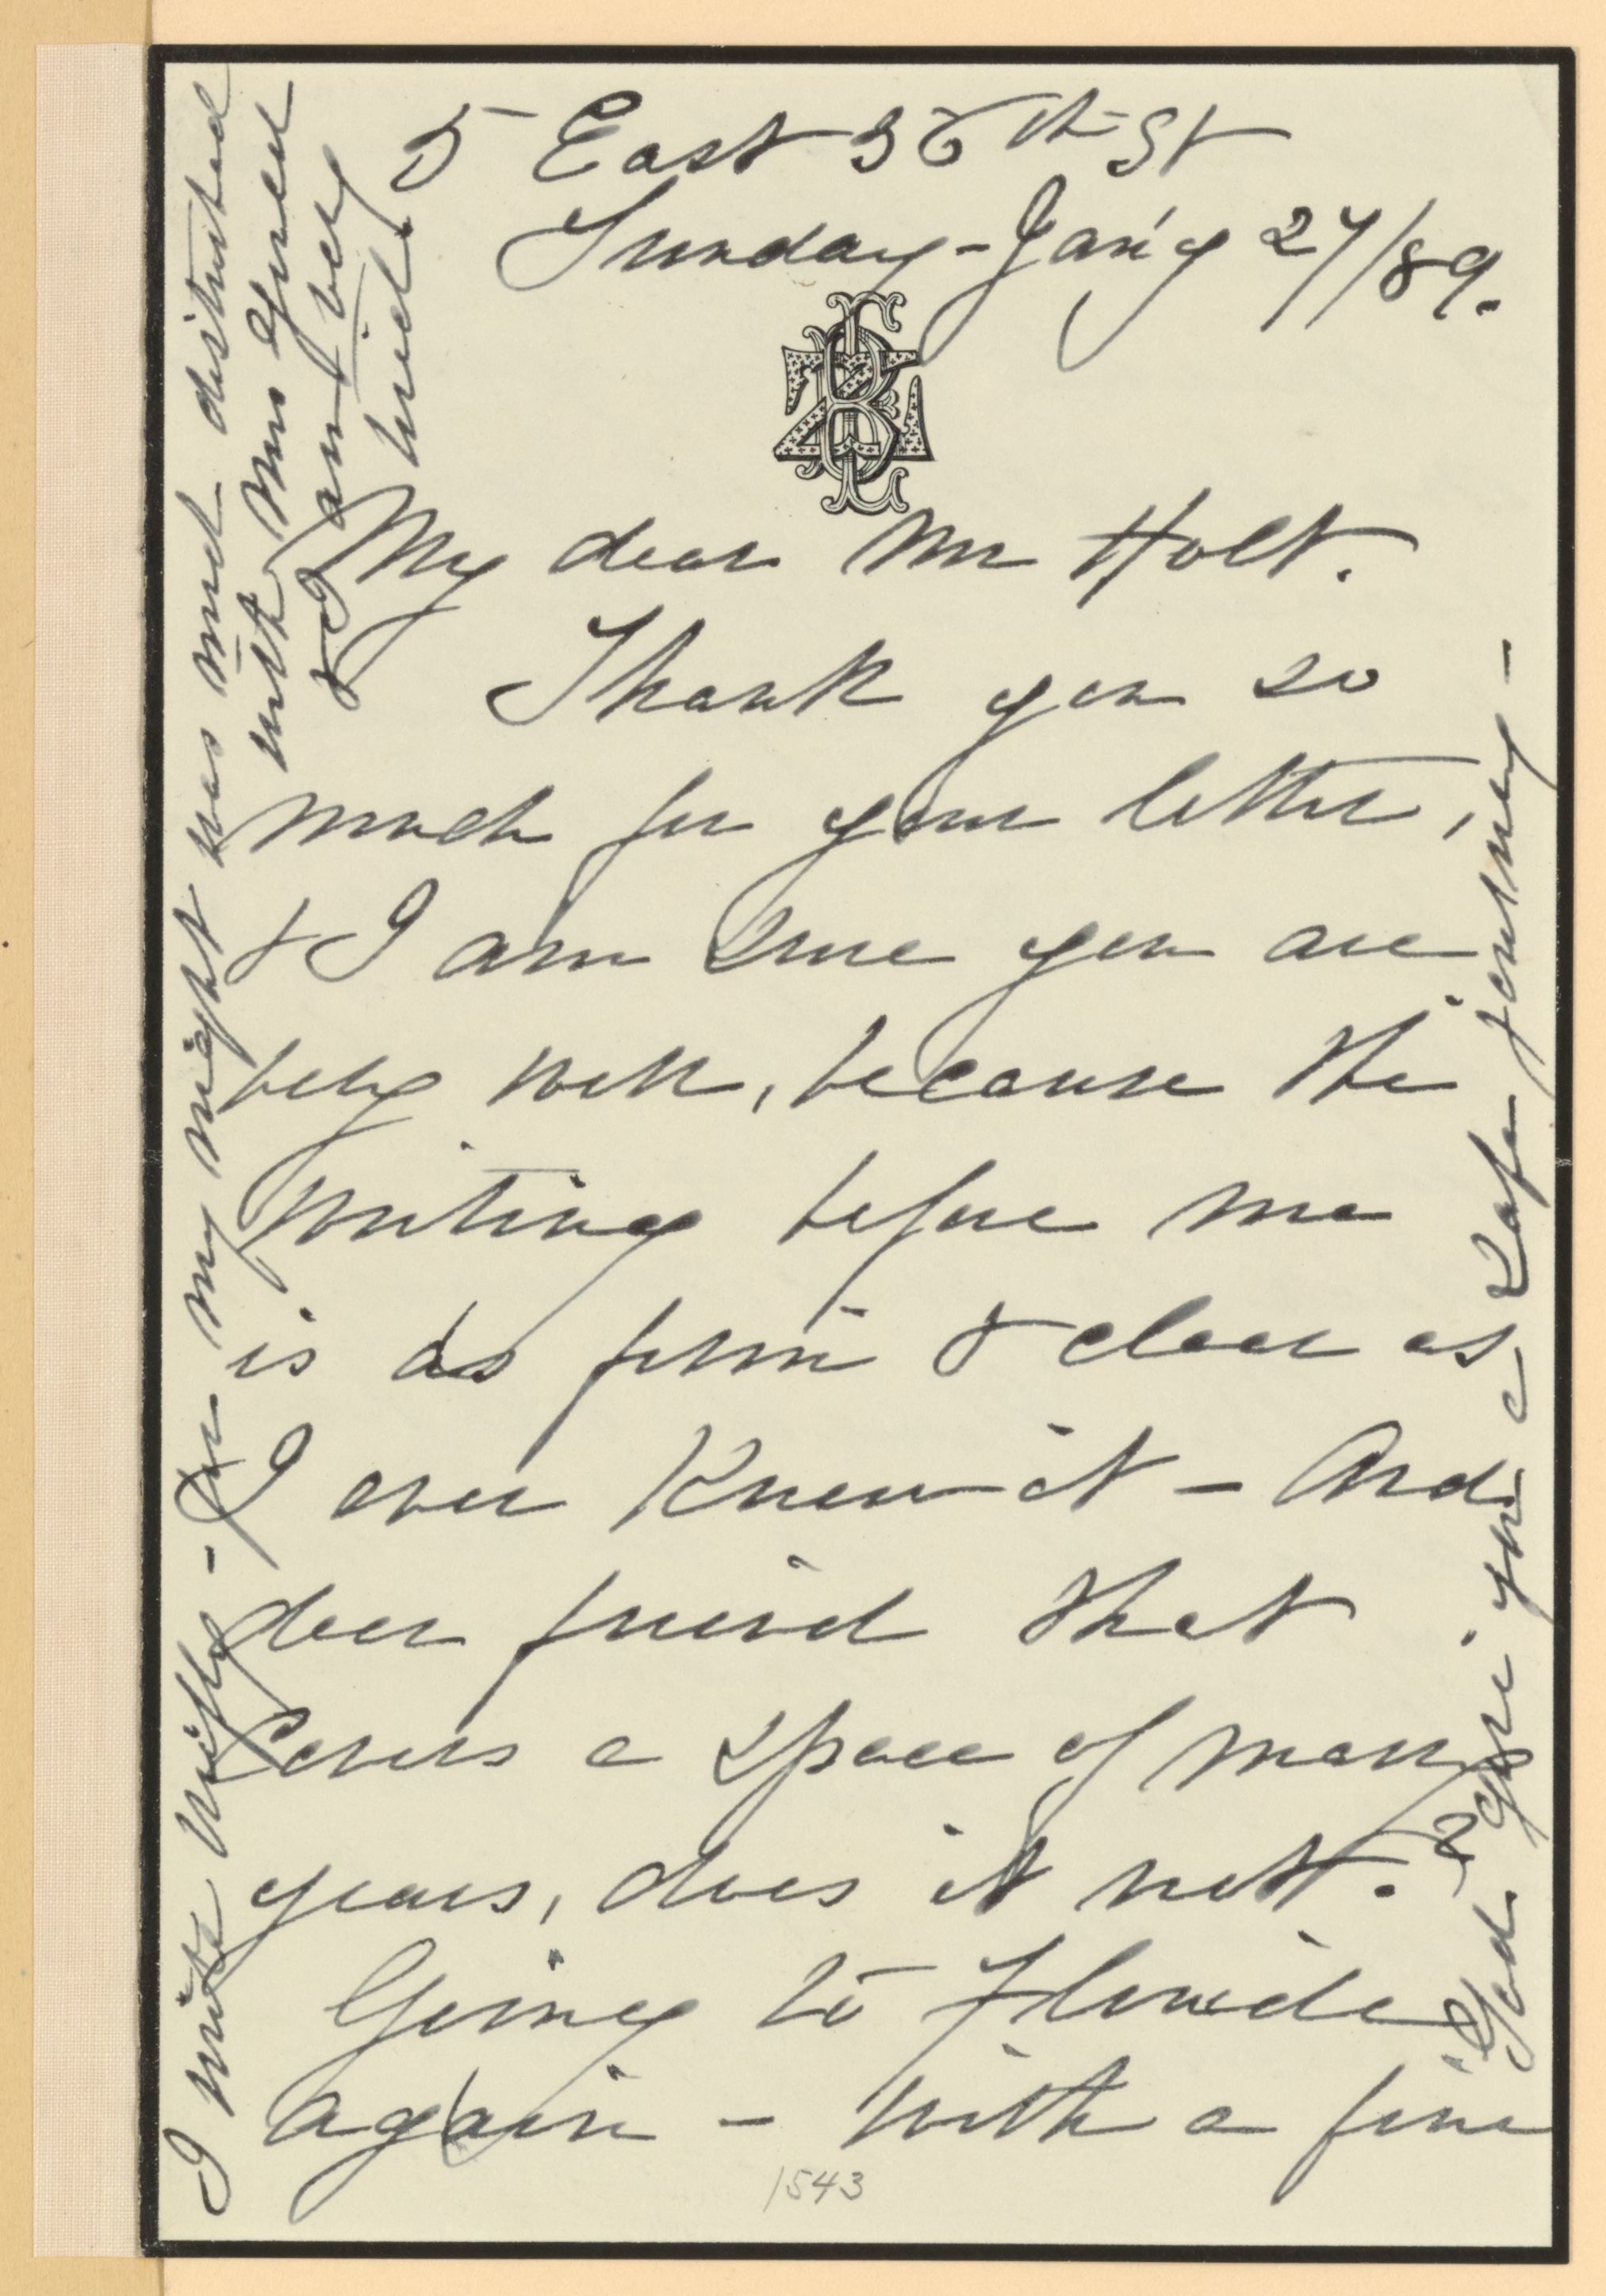 5 East 36th St
Sunday - Jan'y 27/89.
My dear Mr Holt.
Thank you so
much for your letter,
& I am sure you are
very well, because the
writing before me
is as firm & clear as
I ever knew it - And
dear friend that
covers a space of many
years, does it not?
Going to Florida
again - with a fine
I write swiftly - for my night was much disturbed
with Mrs Grned
& I am very
tired.
God again give you a safe journey -
1543